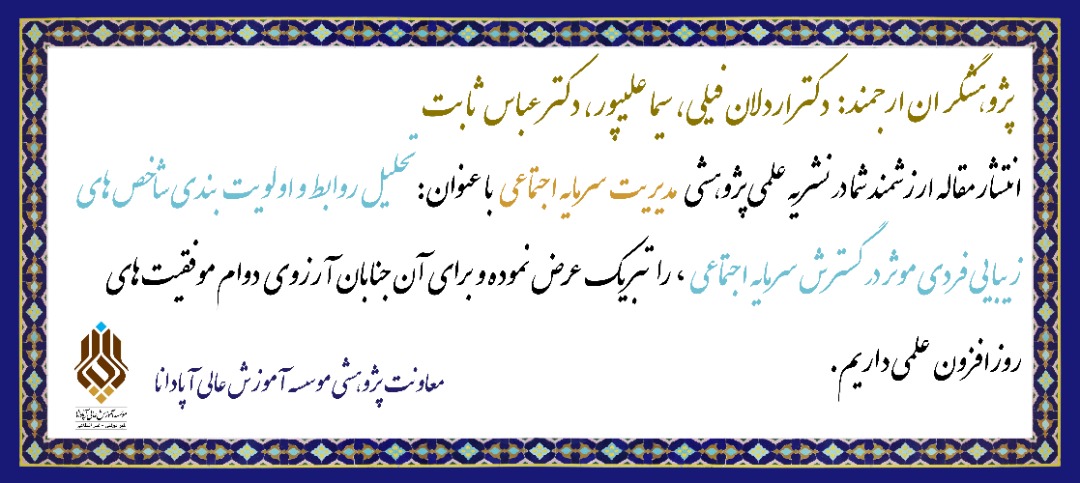 پژوهشگران ارجمند: دکتر اردلان فیلی، سیما علیپور، دکتر عباس ثابت
انتشار مقاله ارزشمند شما در نشریه علمی پژوهشی مدیریت سرمایه اجتماعی با عنوان: تحلیل روابط و اولویت بندی شاخص های
زیبایی فردی موثر در گسترش سرمایه اجتماعی، را تبریک عرض نموده و برای آن جنابان آرزوی دوام موفقیت های
روز افزون علمی داریم.
معاونت پژوهشی موسسه آموزش عالی آپادانا
موسسه آموزش عالی آپادانا
غیر دولتی - غیر انتفاعی